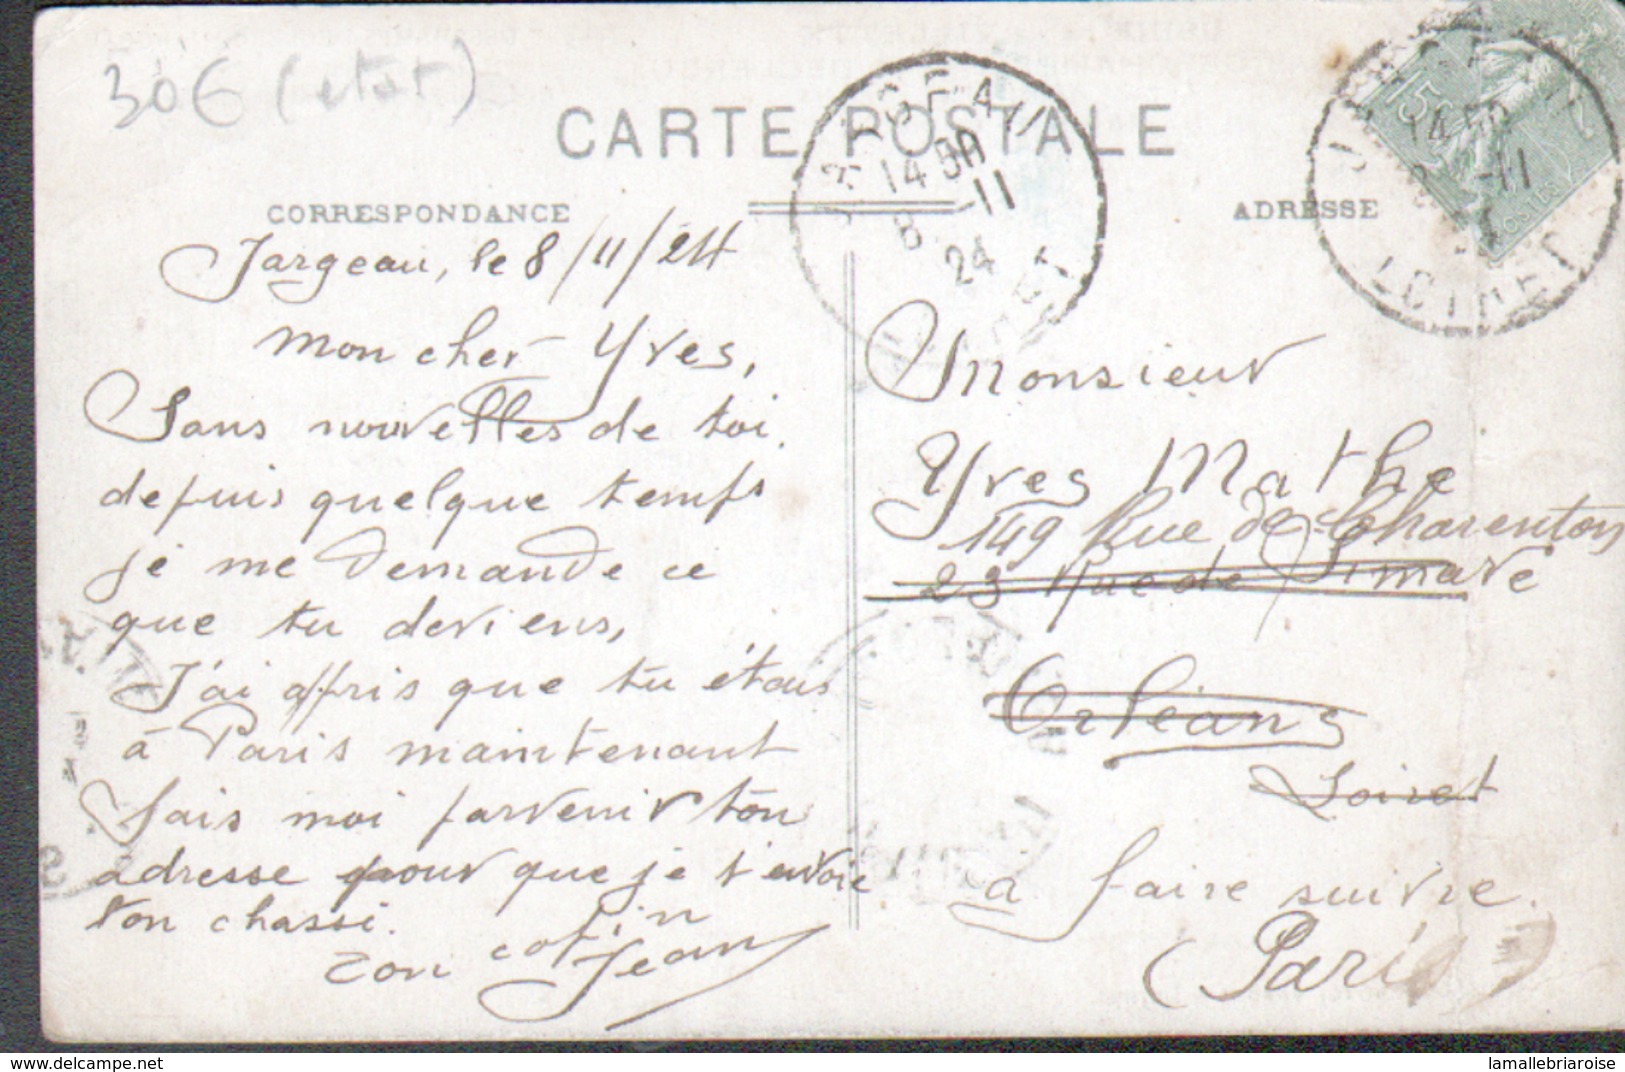 30€ (etat)
CARTE POSTALE
CORRESPONDANCE
ADRESSE
JARGEAU
14 50
8 -11
24
LOIRET
JARGEAU
14 50
8 -11
24
LOIRET
15c
POSTES
Jargeau, le 8/11/24
mon cher Yves,
Sans nouvelles de toi.
depuis quelque temps
je me demande ce
que tu deviens,
J'ai appris que tu étais
à Paris maintenant
fais moi parvenir ton
adresse pour que je t'envoie
ton chassi.
ton cotin
Jean
Monsieur
Yves Mathe
149 Rue de Charenton
23 Rue de Limare
Orléans
Loiret
à faire suivre.
(Paris)
delcampe.net
lamallebriaroise